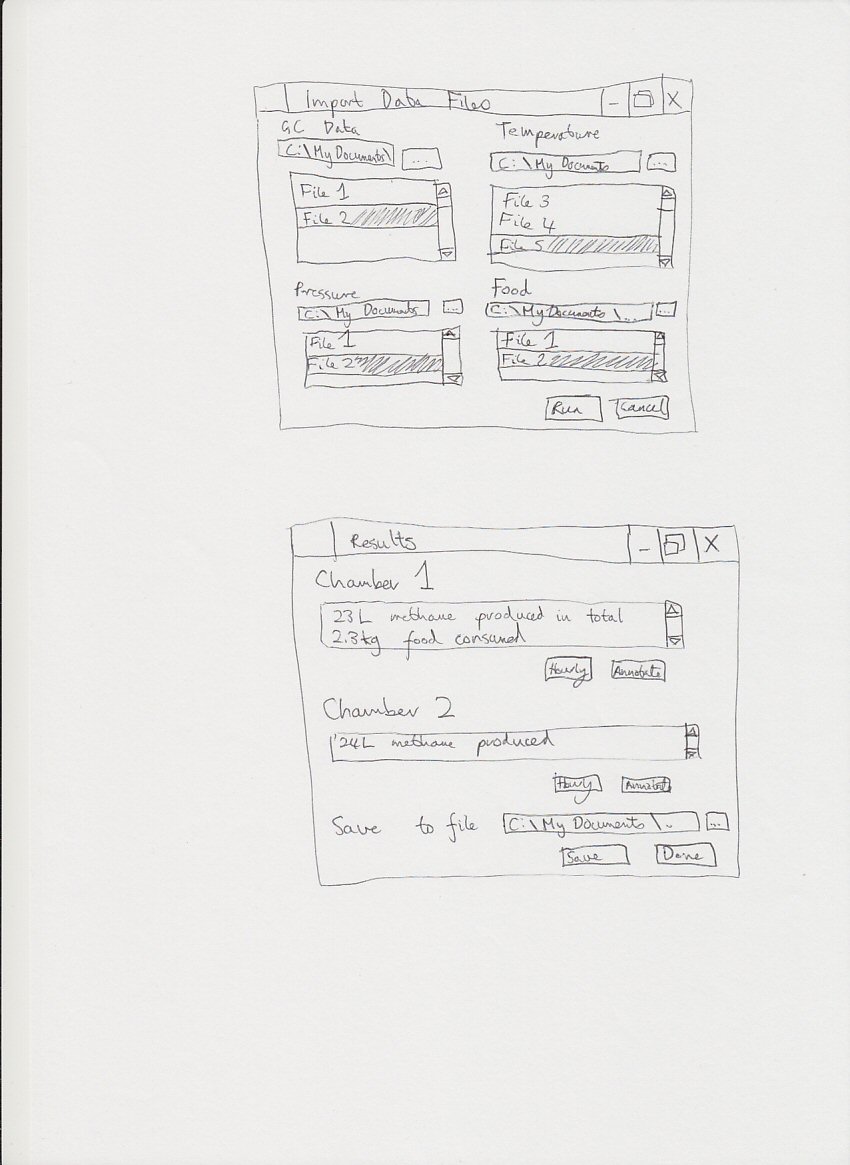 Import Data Files
X
GC Data
C:\My Documents\
...
File 1
File 2
Temperature
C:\My Documents
...
File 3
File 4
File 5
Pressure
C:\My Documents
...
File 1
File 2
Food
C:\My Documents\...
...
File 1
File 2
Run
Cancel
Results
X
Chamber 1
23L methane produced in total
2.3kg food consumed
Hourly
Annotate
Chamber 2
24L methane produced
Hourly
Annotate
Save to file
C:\My Documents\..
...
Save
Done